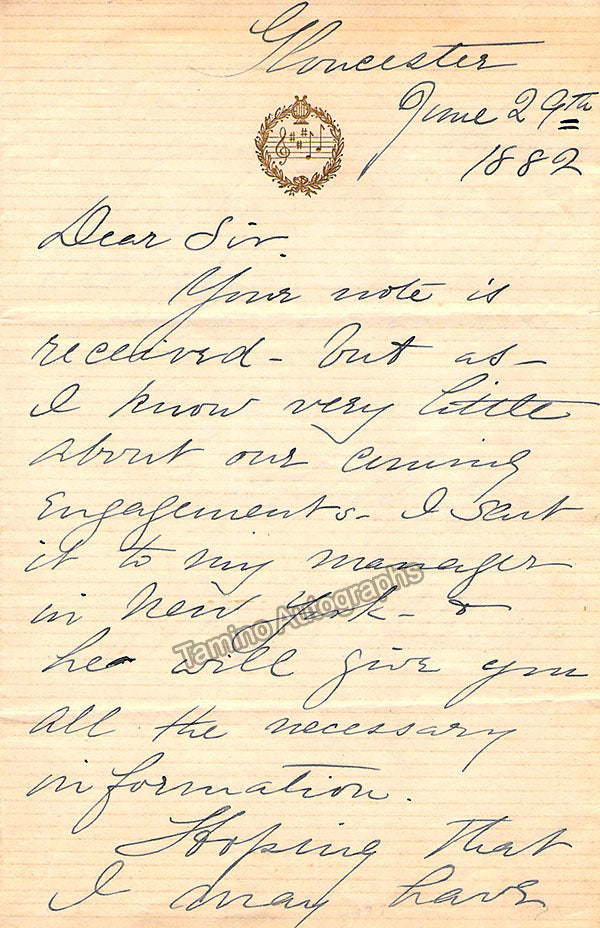 Gloucester
June 29th
1882
Dear Sir.
Your note is
received - but as -
I know very little
about our coming
engagements - I sent
it to my manager
in New York - &
he will give you
all the necessary
information.
Hoping that
I may have
Tamino Autographs